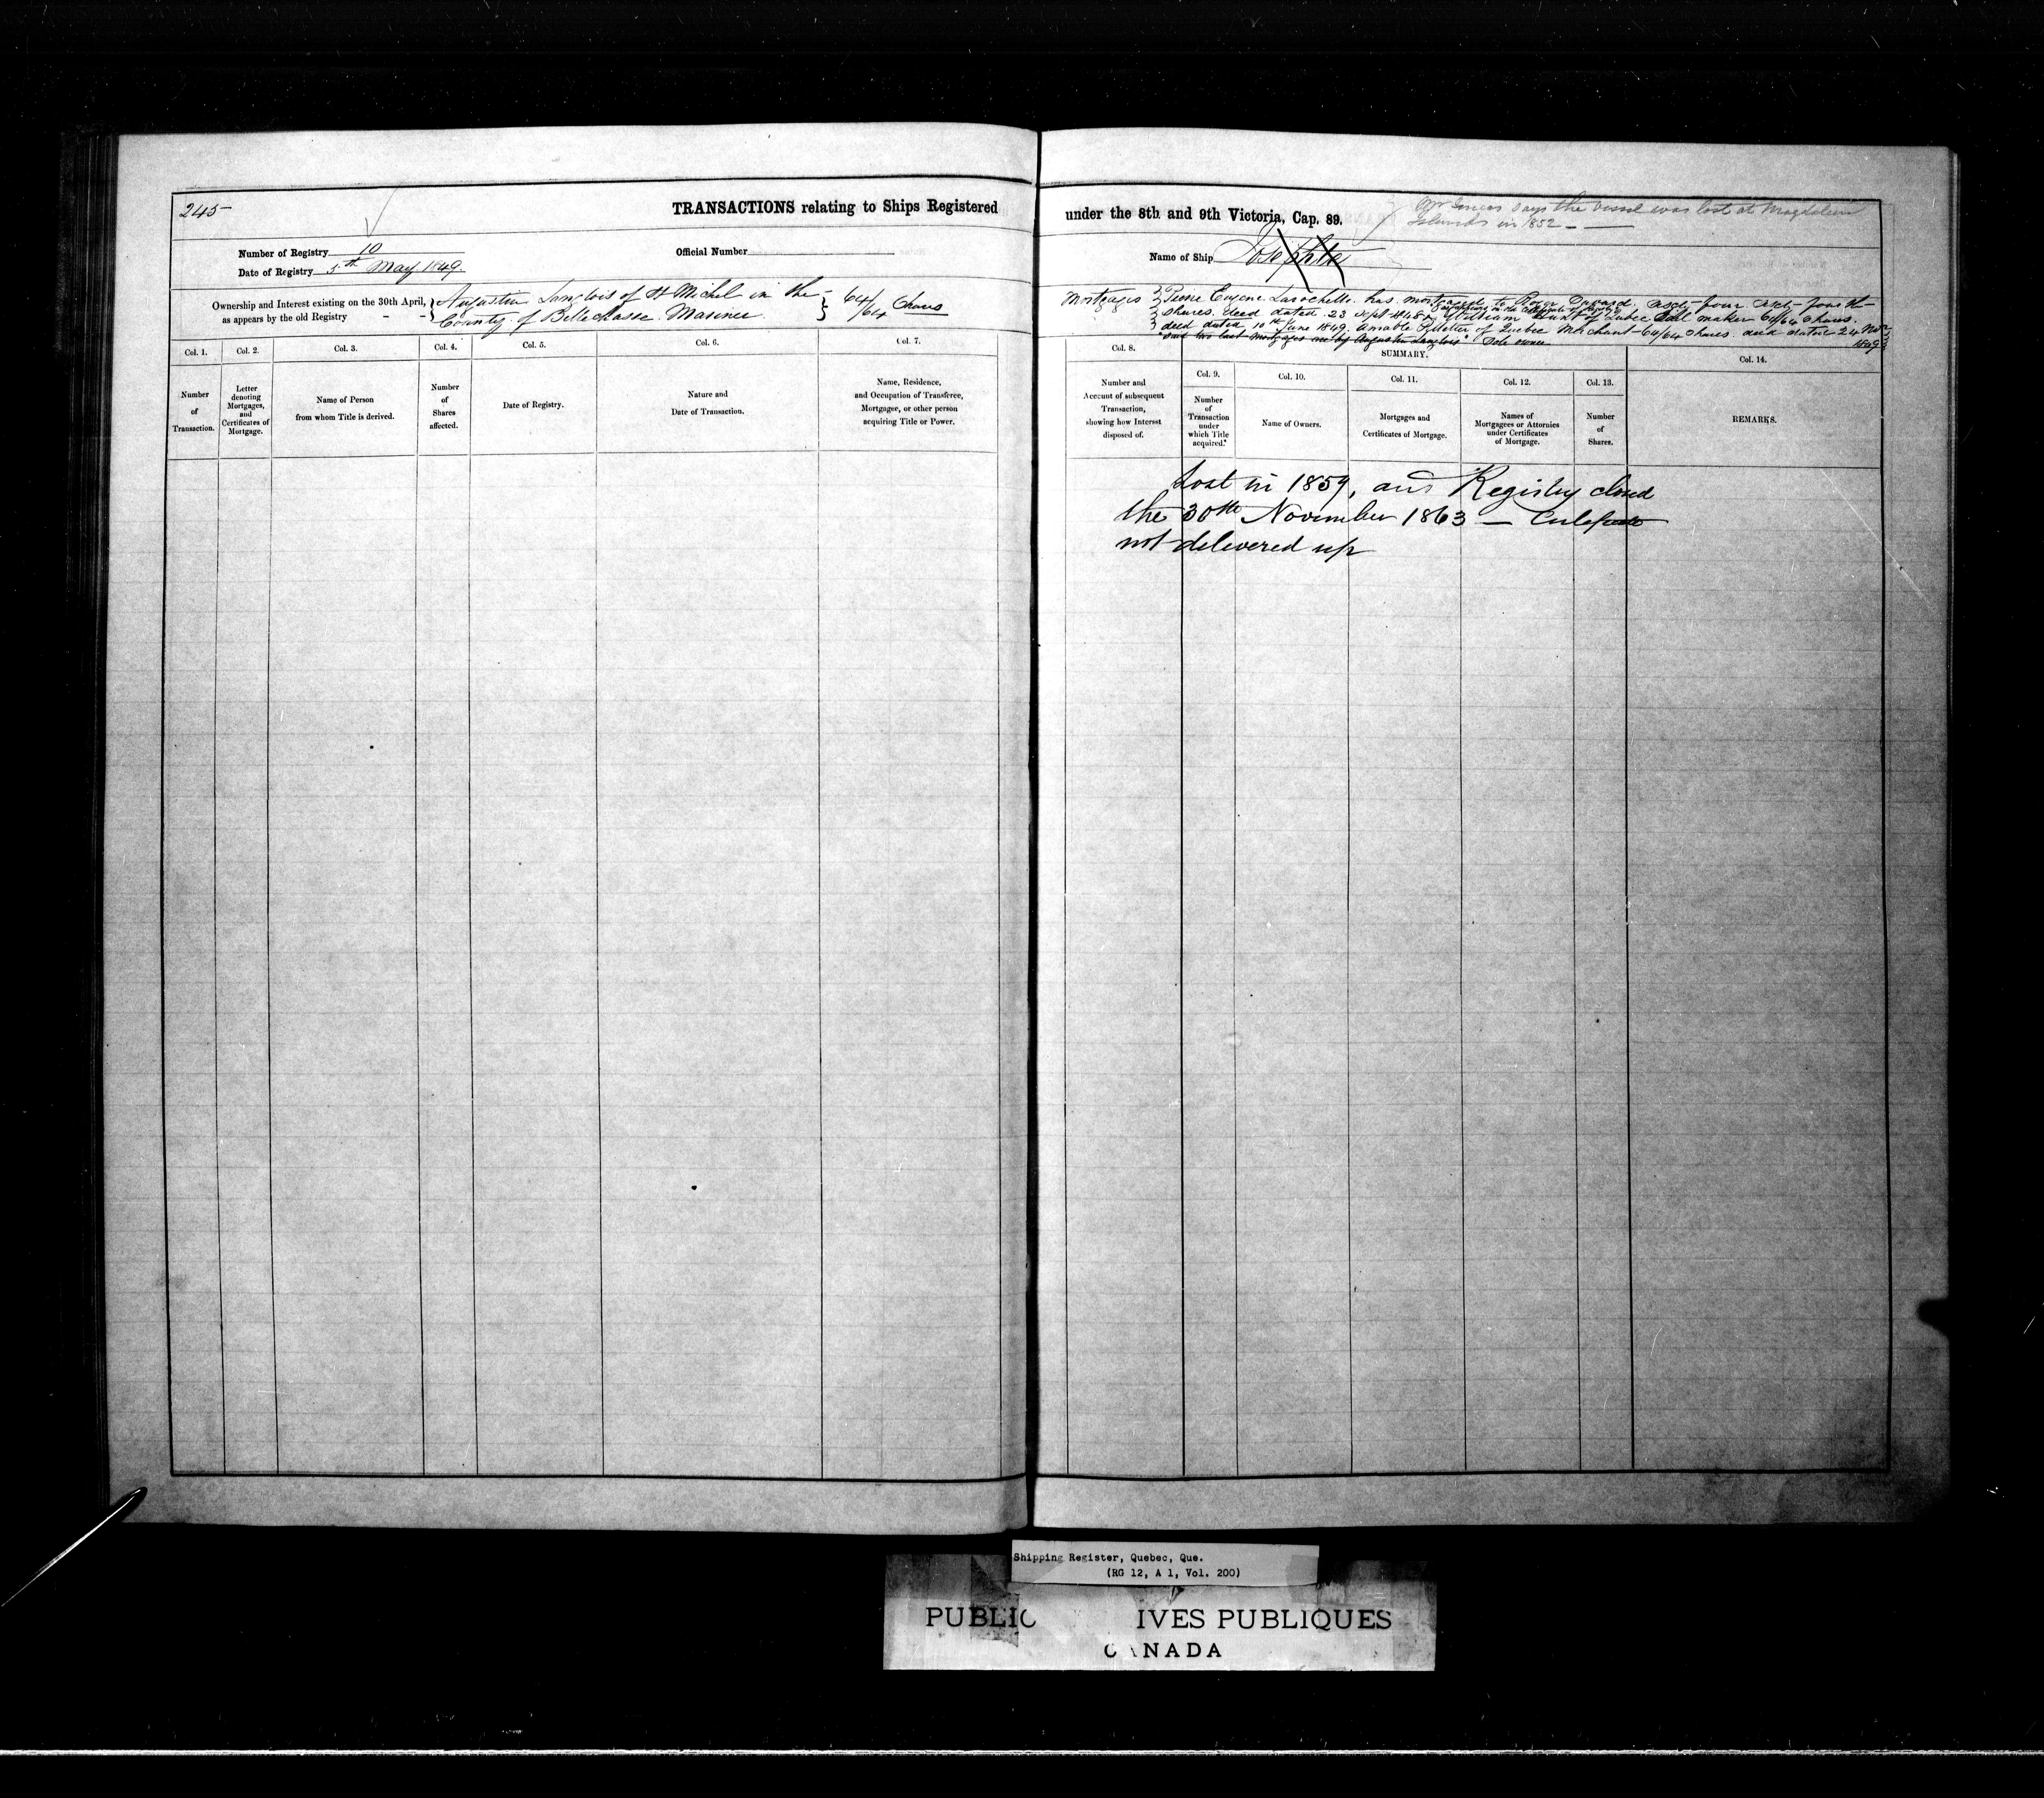 245
TRANSACTIONS relating to Ships Registered
Number of Registry 10
Official Number
Date of Registry 5th May 1849.
Ownership and Interest existing on the 30th April,
as appears by the old Registry - -
Augustin Langlois of St Michel in the
County of Bellechasse. Mariner
64/64 Shares
Col. 1.
Col. 2.
Col. 3.
Col. 4.
Col. 5.
Col. 6.
Col. 7.
Number
of
Transaction.
Letter
denoting
Mortgages,
and
Certificates of
Mortgage.
Name of Person
from whom Title is derived.
Number
of
Shares
affected.
Date of Registry.
Nature and
Date of Transaction.
Name, Residence,
and Occupation of Transferee,
Mortgagee, or other person
acquiring Title or Power.
under the 8th and 9th Victoria, Cap. 89.
says the vessel was lost at Magdalen
Islands in 1852
Name of Ship
Mortgages Pierre Eugene Larochelle has mortgaged to Sixty-four Sixty-fourth
shares. deed dated 23 Sept 1848 William of Quebec Sail maker 64/64 Shares.
deed dated 10th June 1849. Amable of Quebec Merchant 64/64 Shares. deed dated 24 Nov
1849
two last mortgages are by Augustin Langlois Sole owner
Col. 8.
SUMMARY.
Col. 14.
Col. 9.
Col. 10.
Col. 11.
Col. 12.
Col. 13.
Number and
Account of subsequent
Transaction,
showing how Interest
disposed of.
Number
of
Transaction
under
which Title
acquired.
Name of Owners.
Mortgages and
Certificates of Mortgage.
Names of
Mortgagees or Attornies
under Certificates
of Mortgage.
Number
of
Shares.
REMARKS.
Lost in 1859, and Registry closed
the 30th November 1863 — Certificate
not delivered up
Shipping Register, Quebec, Que.
(RG 12, A 1, Vol. 200)
PUBLIC IVES PUBLIQUES
CANADA